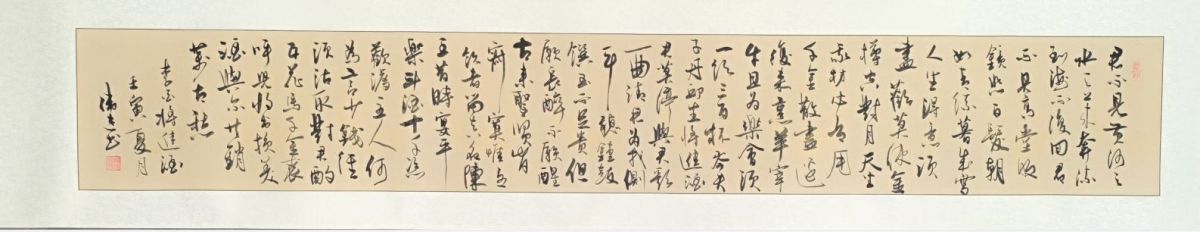 君不見黃河之
水天上來奔流
到海不復回君
不見高堂明
鏡悲白髮朝
如青絲暮成雪
人生得意須
盡歡莫使金
樽空對月天生
我材必有用
千金散盡還
復來烹羊宰
牛且為樂會須
一飲三百杯岑夫
子丹邱生將進酒
君莫停與君歌
一曲請君為我側
耳聽鐘鼓
饌玉不足貴但
願長醉不願醒
古來聖賢皆
寂寞唯有
飲者留其名陳
王昔時宴平
樂斗酒十千恣
歡謔主人何
為言少錢徑
須沽取對君酌
五花馬千金裘
呼兒將出換美
酒與爾共銷
萬古愁
李白將進酒
壬寅夏月
書